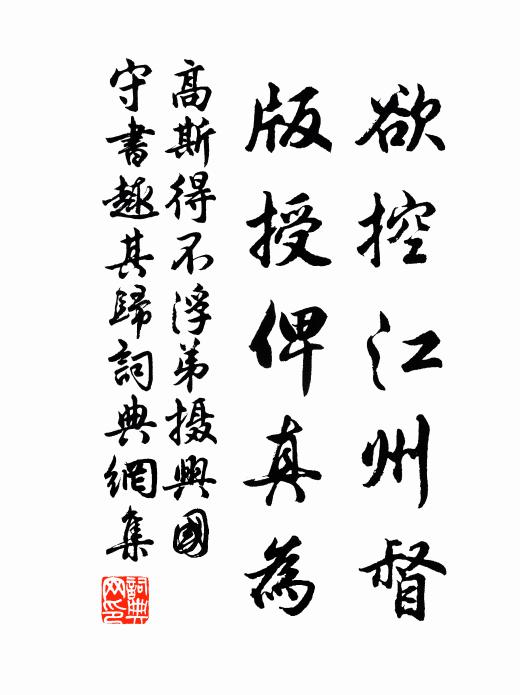 欲控江州督
版授俾真為
高斯得不浮弟摄興國
守書趣其歸詞典網集
詞典